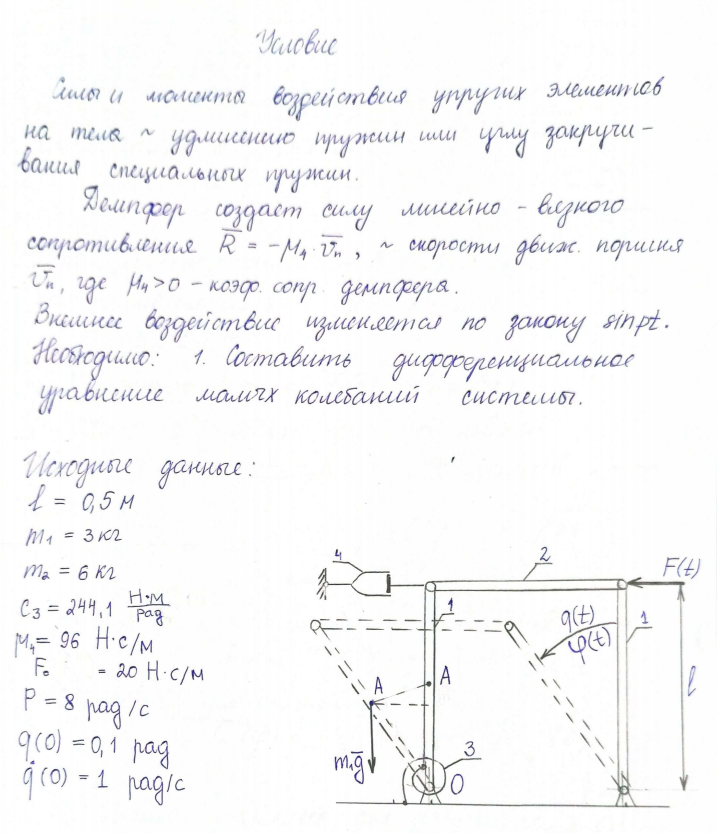 Условие
Силы и моменты воздействия упругих элементов
на тела ~ удлинению пружин или углу закручи-
вания специальных пружин.
Демпфер создаст силу линейно - вязкого
сопротивления R̅ = -μ₄ · v̅ₙ , ~ скорости движ. поршня
v̅ₙ, где μ₄>0 - коэф. сопр. демпфера.
Внешнее воздействие изменяется по закону sinpt.
Необходимо: 1. Составить дифференциальное
уравнение малых колебаний системы.
Исходные данные:
l = 0,5 м
m₁ = 3 кг
m₂ = 6 кг
c₃ = 244,1 Н·м/рад
μ₄ = 96 Н·с/м
F₀ = 20 Н·с/м
P = 8 рад/с
q(0) = 0,1 рад
q̇(0) = 1 рад/с
4
2
F(t)
1
q(t)
φ(t)
1
l
A
A
m₁g̅
3
O